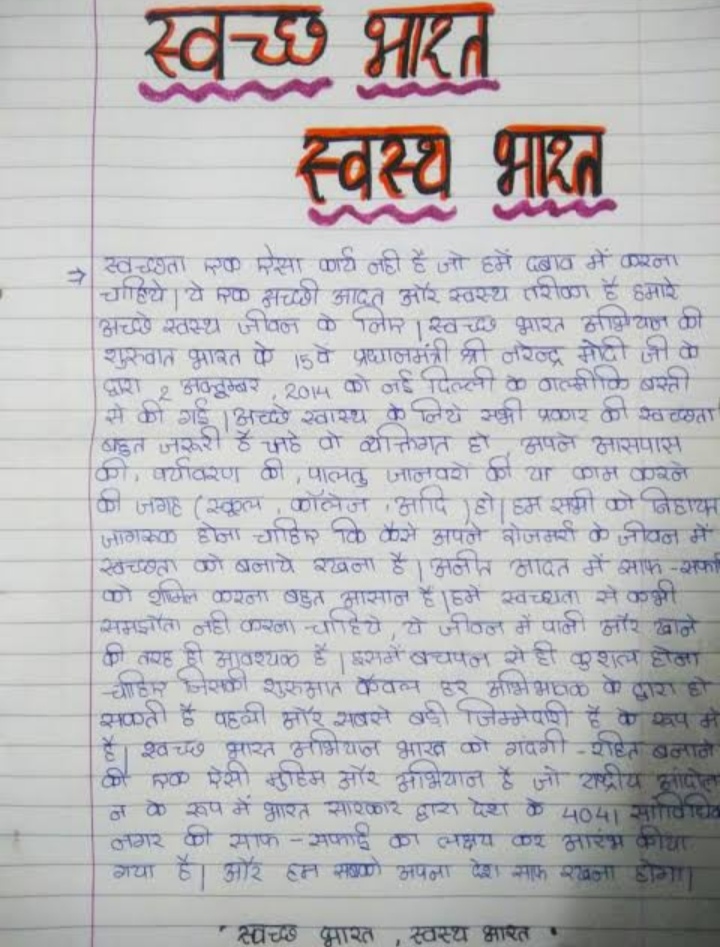 स्वच्छ भारत
स्वस्थ भारत
⇒ स्वच्छता एक ऐसा कार्य नही है जो हमें दबाव में करना
चाहिये। ये एक अच्छी आदत और स्वस्थ तरीका है हमारे
अच्छे स्वस्थ जीवन के लिए। स्वच्छ भारत अभियान की
शुरुवात भारत के 15वे प्रधानमंत्री श्री नरेन्द्र मोदी जी के
द्वारा 2 अक्टूम्बर, 2014 को नई दिल्ली के वाल्मीकि बस्ती
से की गई। अच्छे स्वास्थ के लिये सभी प्रकार की स्वच्छता
बहुत जरूरी है चाहे वो व्यक्तिगत हो, अपने आसपास
की, पर्यावरण की, पालतु जानवरों की या काम करने
की जगह (स्कूल, कॉलेज, आदि) हो। हम सभी को निहायत
जागरूक होना चाहिए कि कैसे अपने रोजमर्रा के जीवन में
स्वच्छता को बनाये रखना है। आदत में साफ-सफाई
को शामिल करना बहुत आसान है। हमें स्वच्छता से कभी
समझौता नही करना चाहिये, ये जीवन में पानी और खाने
की तरह ही आवश्यक है। इसमें बचपन से ही कुशल होना
चाहिए जिसकी शुरुआत केवल हर अभिभावक के द्वारा हो
सकती है पहली और सबसे बड़ी जिम्मेदारी है के रूप में
है। स्वच्छ भारत अभियान भारत को गंदगी-रहित बनाने
की एक ऐसी मुहिम और अभियान है जो राष्ट्रीय आंदोल
न के रूप में भारत सारकार द्वारा देश के 4041 सांविधिक
नगर की साफ-सफाई का लक्षय कर आरंभ कीया
गया है। और हम सबको अपना देश साफ रखना होगा।
" स्वच्छ भारत, स्वस्थ भारत "